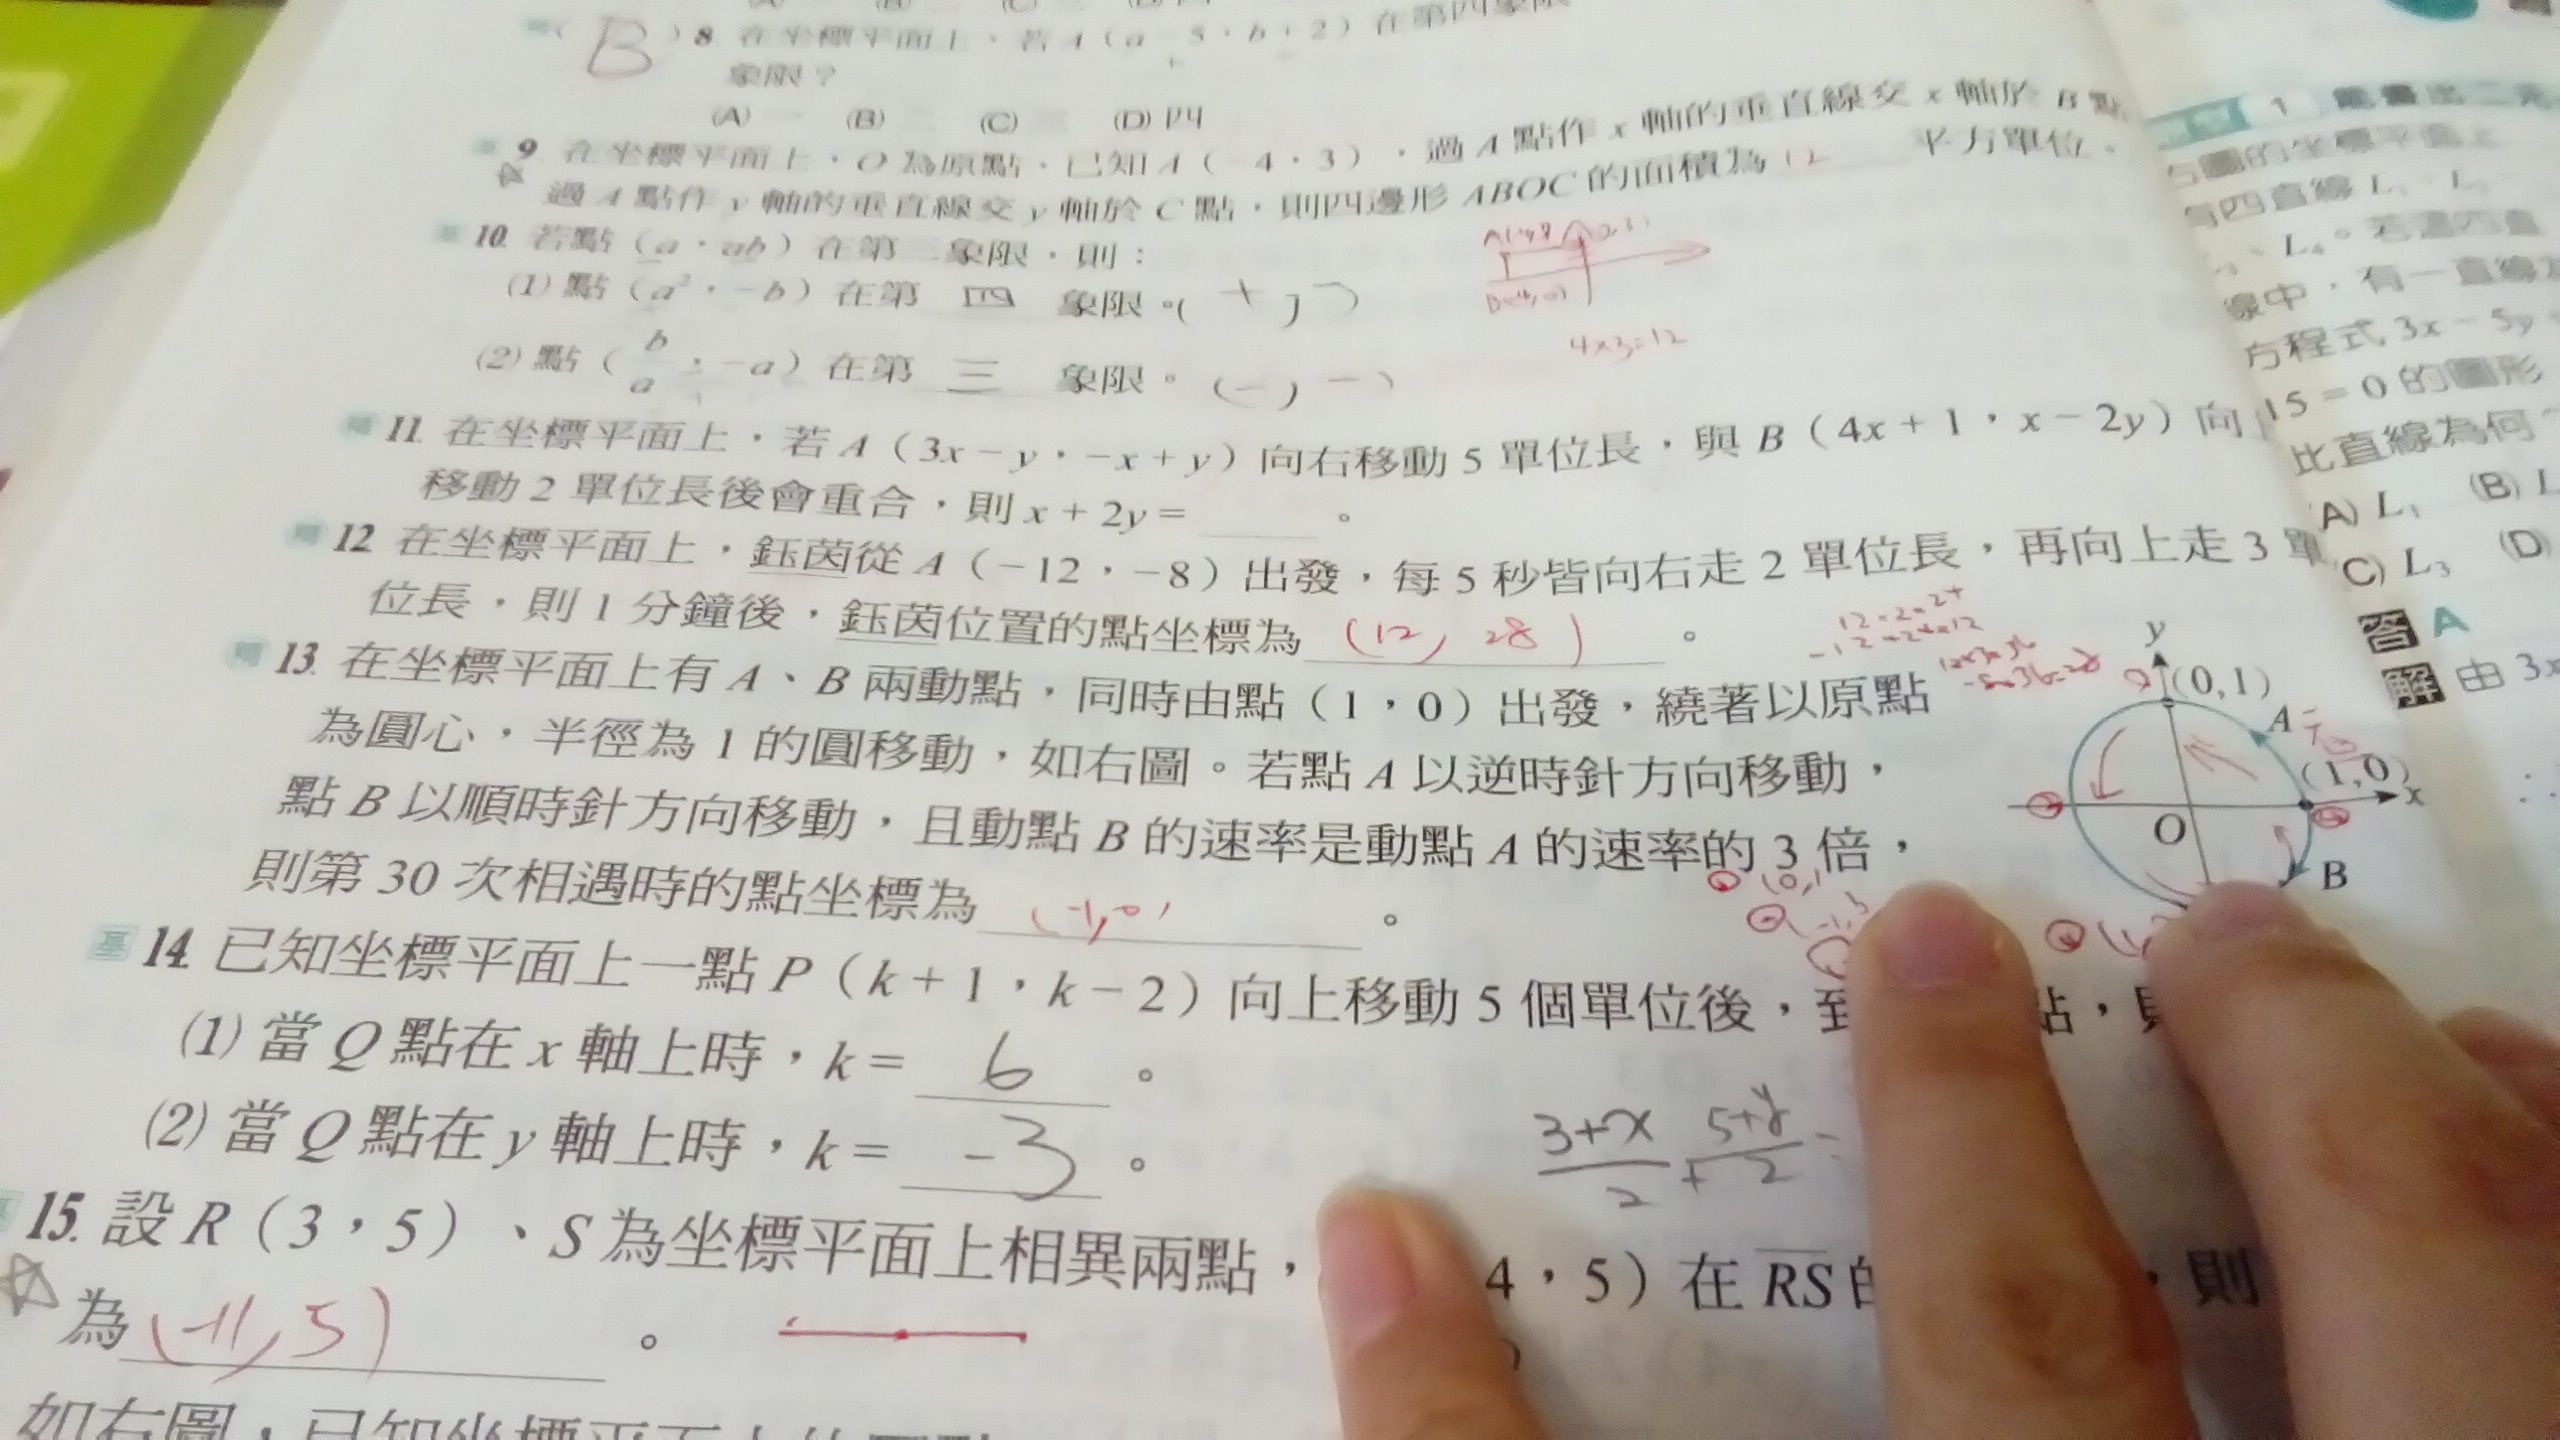 B ) 8. 在坐標平面上，若 A（a－5，b＋2）在第四象限
象限？
(A) 一 (B) 二 (C) 三 (D) 四
9. 在坐標平面上，O 為原點，已知 A（－4，3），過 A 點作 x 軸的垂直線交 x 軸於 B 點
過 A 點作 y 軸的垂直線交 y 軸於 C 點，則四邊形 ABOC 的面積為 12 平方單位。
10. 若點（a，ab）在第三象限，則：
(1) 點（a²，－b）在第 四 象限。(+, -)
(2) 點（b/a，－a）在第 三 象限。(-, -)
4×3=12
11. 在坐標平面上，若 A（3x－y，－x＋y）向右移動 5 單位長，與 B（4x＋1，x－2y）向
移動 2 單位長後會重合，則 x＋2y＝ 。
12. 在坐標平面上，鈺茵從 A（－12，－8）出發，每 5 秒皆向右走 2 單位長，再向上走 3 單
位長，則 1 分鐘後，鈺茵位置的點坐標為 (12, 28) 。
精 13. 在坐標平面上有 A、B 兩動點，同時由點（1，0）出發，繞著以原點
為圓心，半徑為 1 的圓移動，如右圖。若點 A 以逆時針方向移動，
點 B 以順時針方向移動，且動點 B 的速率是動點 A 的速率的 3 倍，
則第 30 次相遇時的點坐標為 (-1, 0) 。
y
(0,1)
A
(1,0)
x
O
B
基 14. 已知坐標平面上一點 P（k＋1，k－2）向上移動 5 個單位後，
點，
(1) 當 Q 點在 x 軸上時，k＝ 6 。
(2) 當 Q 點在 y 軸上時，k＝ -3 。
3+x/2 + 5+y/2 =
15. 設 R（3，5）、S 為坐標平面上相異兩點，
4，5）在 RS
，則
為 (-11, 5) 。
如右圖，已知坐標平面上
1
有四直線 L₁、L₂
、L₄。若這四直
線中，有一直線為
方程式 3x－5y
15＝0 的圖形
比直線為何
A) L₁ (B) L
C) L₃ (D)
答 A
解 由 3x